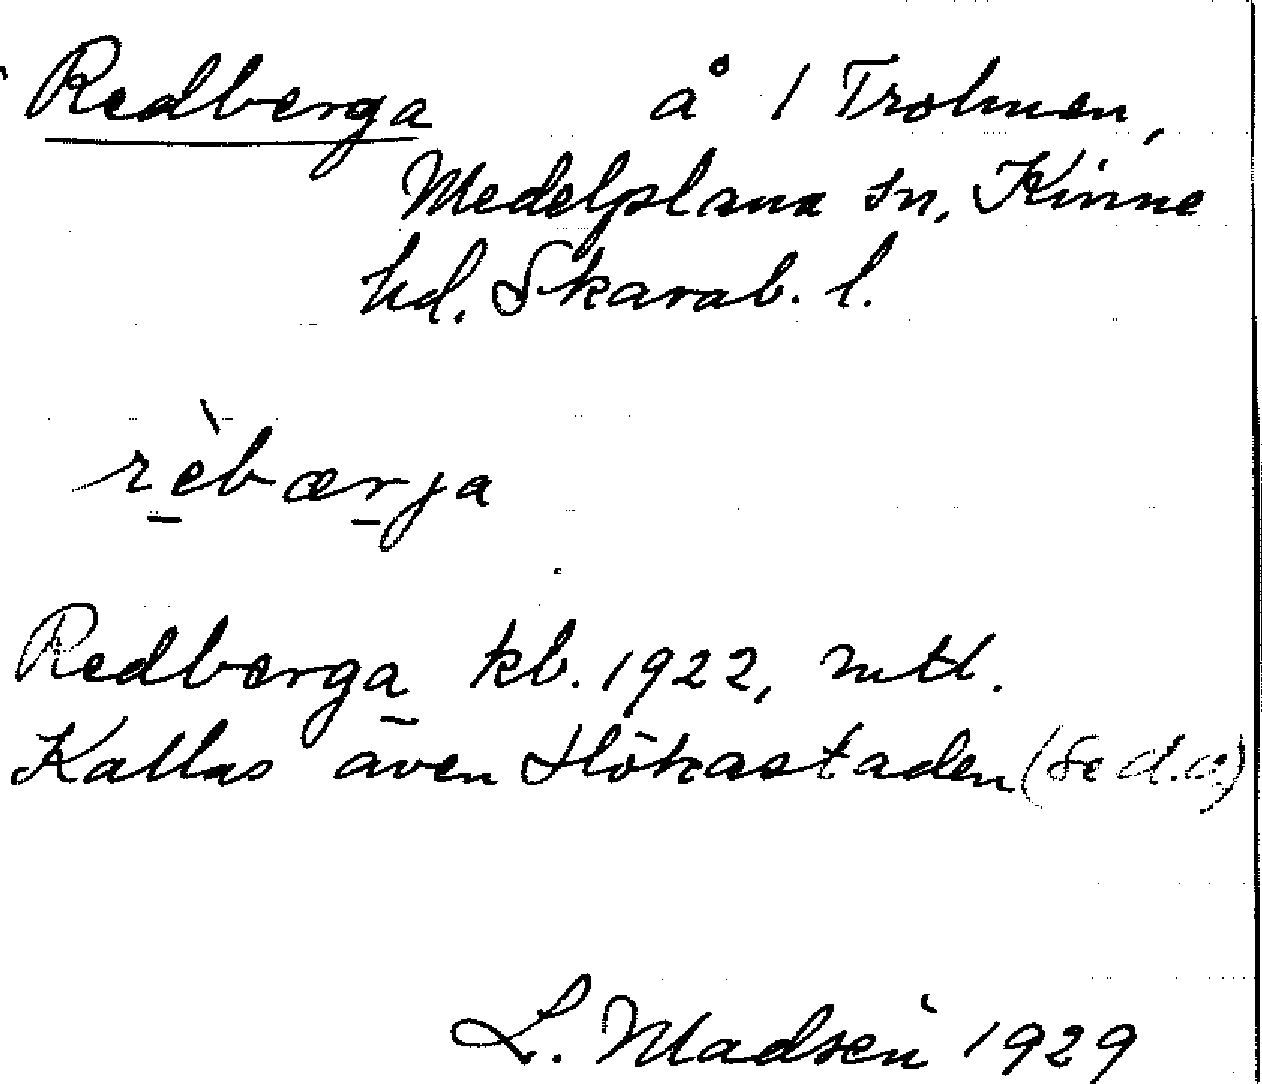 Redberga å 1 Trolmen,
Medelplana sn, Kinne
hd. Skarab. l.
rèbærja
Redberga kb. 1922, mtl.
Kallas även Hökastaden (se d.o)
L. Madsén 1929